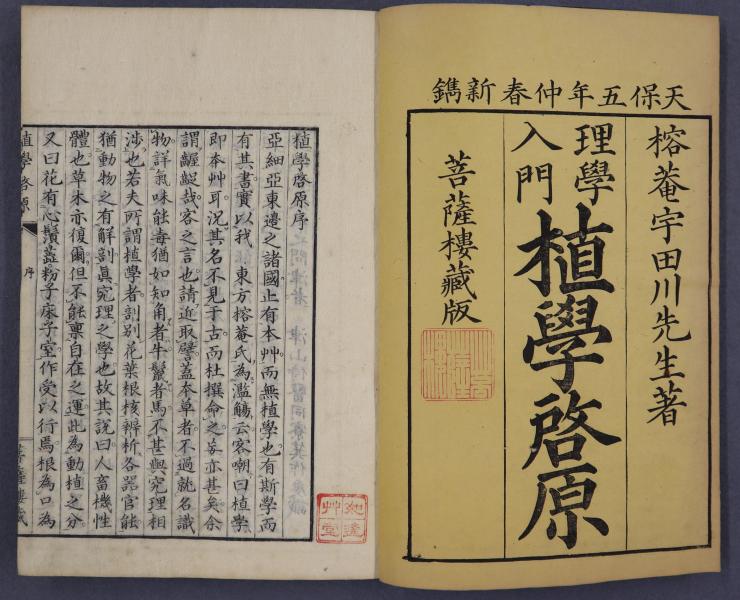 天保五年仲春新鐫
榕菴宇田川先生著
理學
入門
植學啓原
菩薩樓藏版
植學啓原序
亞細亞東邊之諸國止有本艸而無植學也有斯學而
有其書實以我東方榕菴氏為濫觴云客嘲曰植學
即本艸耳况其名不見于古而杜撰命之妄亦甚矣余
謂齷齪哉客之言也請近取譬蓋本草者不過就名識
物詳氣味能毒猶如知角者牛鬣者馬不甚與究理相
涉也若夫所謂植學者剖別花葉根核辨析各器官能
猶動物之有解剖真究理之學也故其說曰人畜機性
體也草木亦復爾但不能禀自在之運此為動植之分
又曰花有心鬚蕊粉子床子室作受以行焉根為口為
植學啓原
序
菩薩樓藏